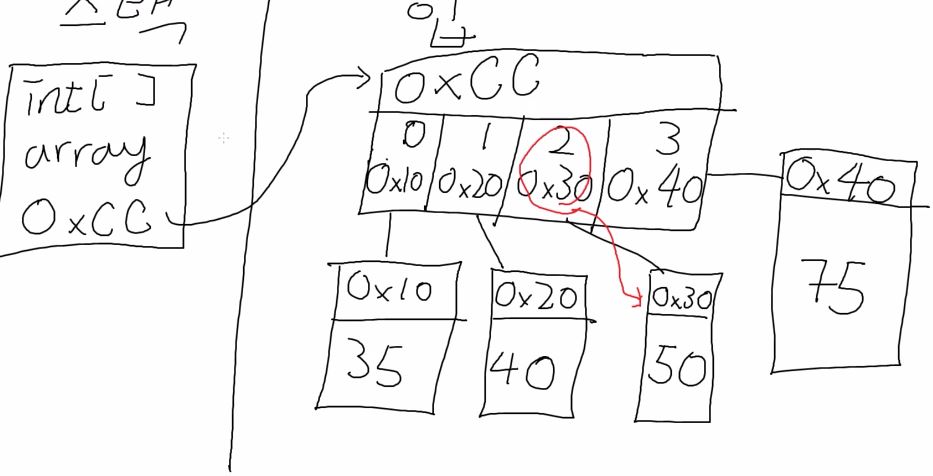 int[]
array
0xCC
0xCC
0 1 2 3
0x10 0x20 0x30 0x40
0x40
75
0x10
35
0x20
40
0x30
50